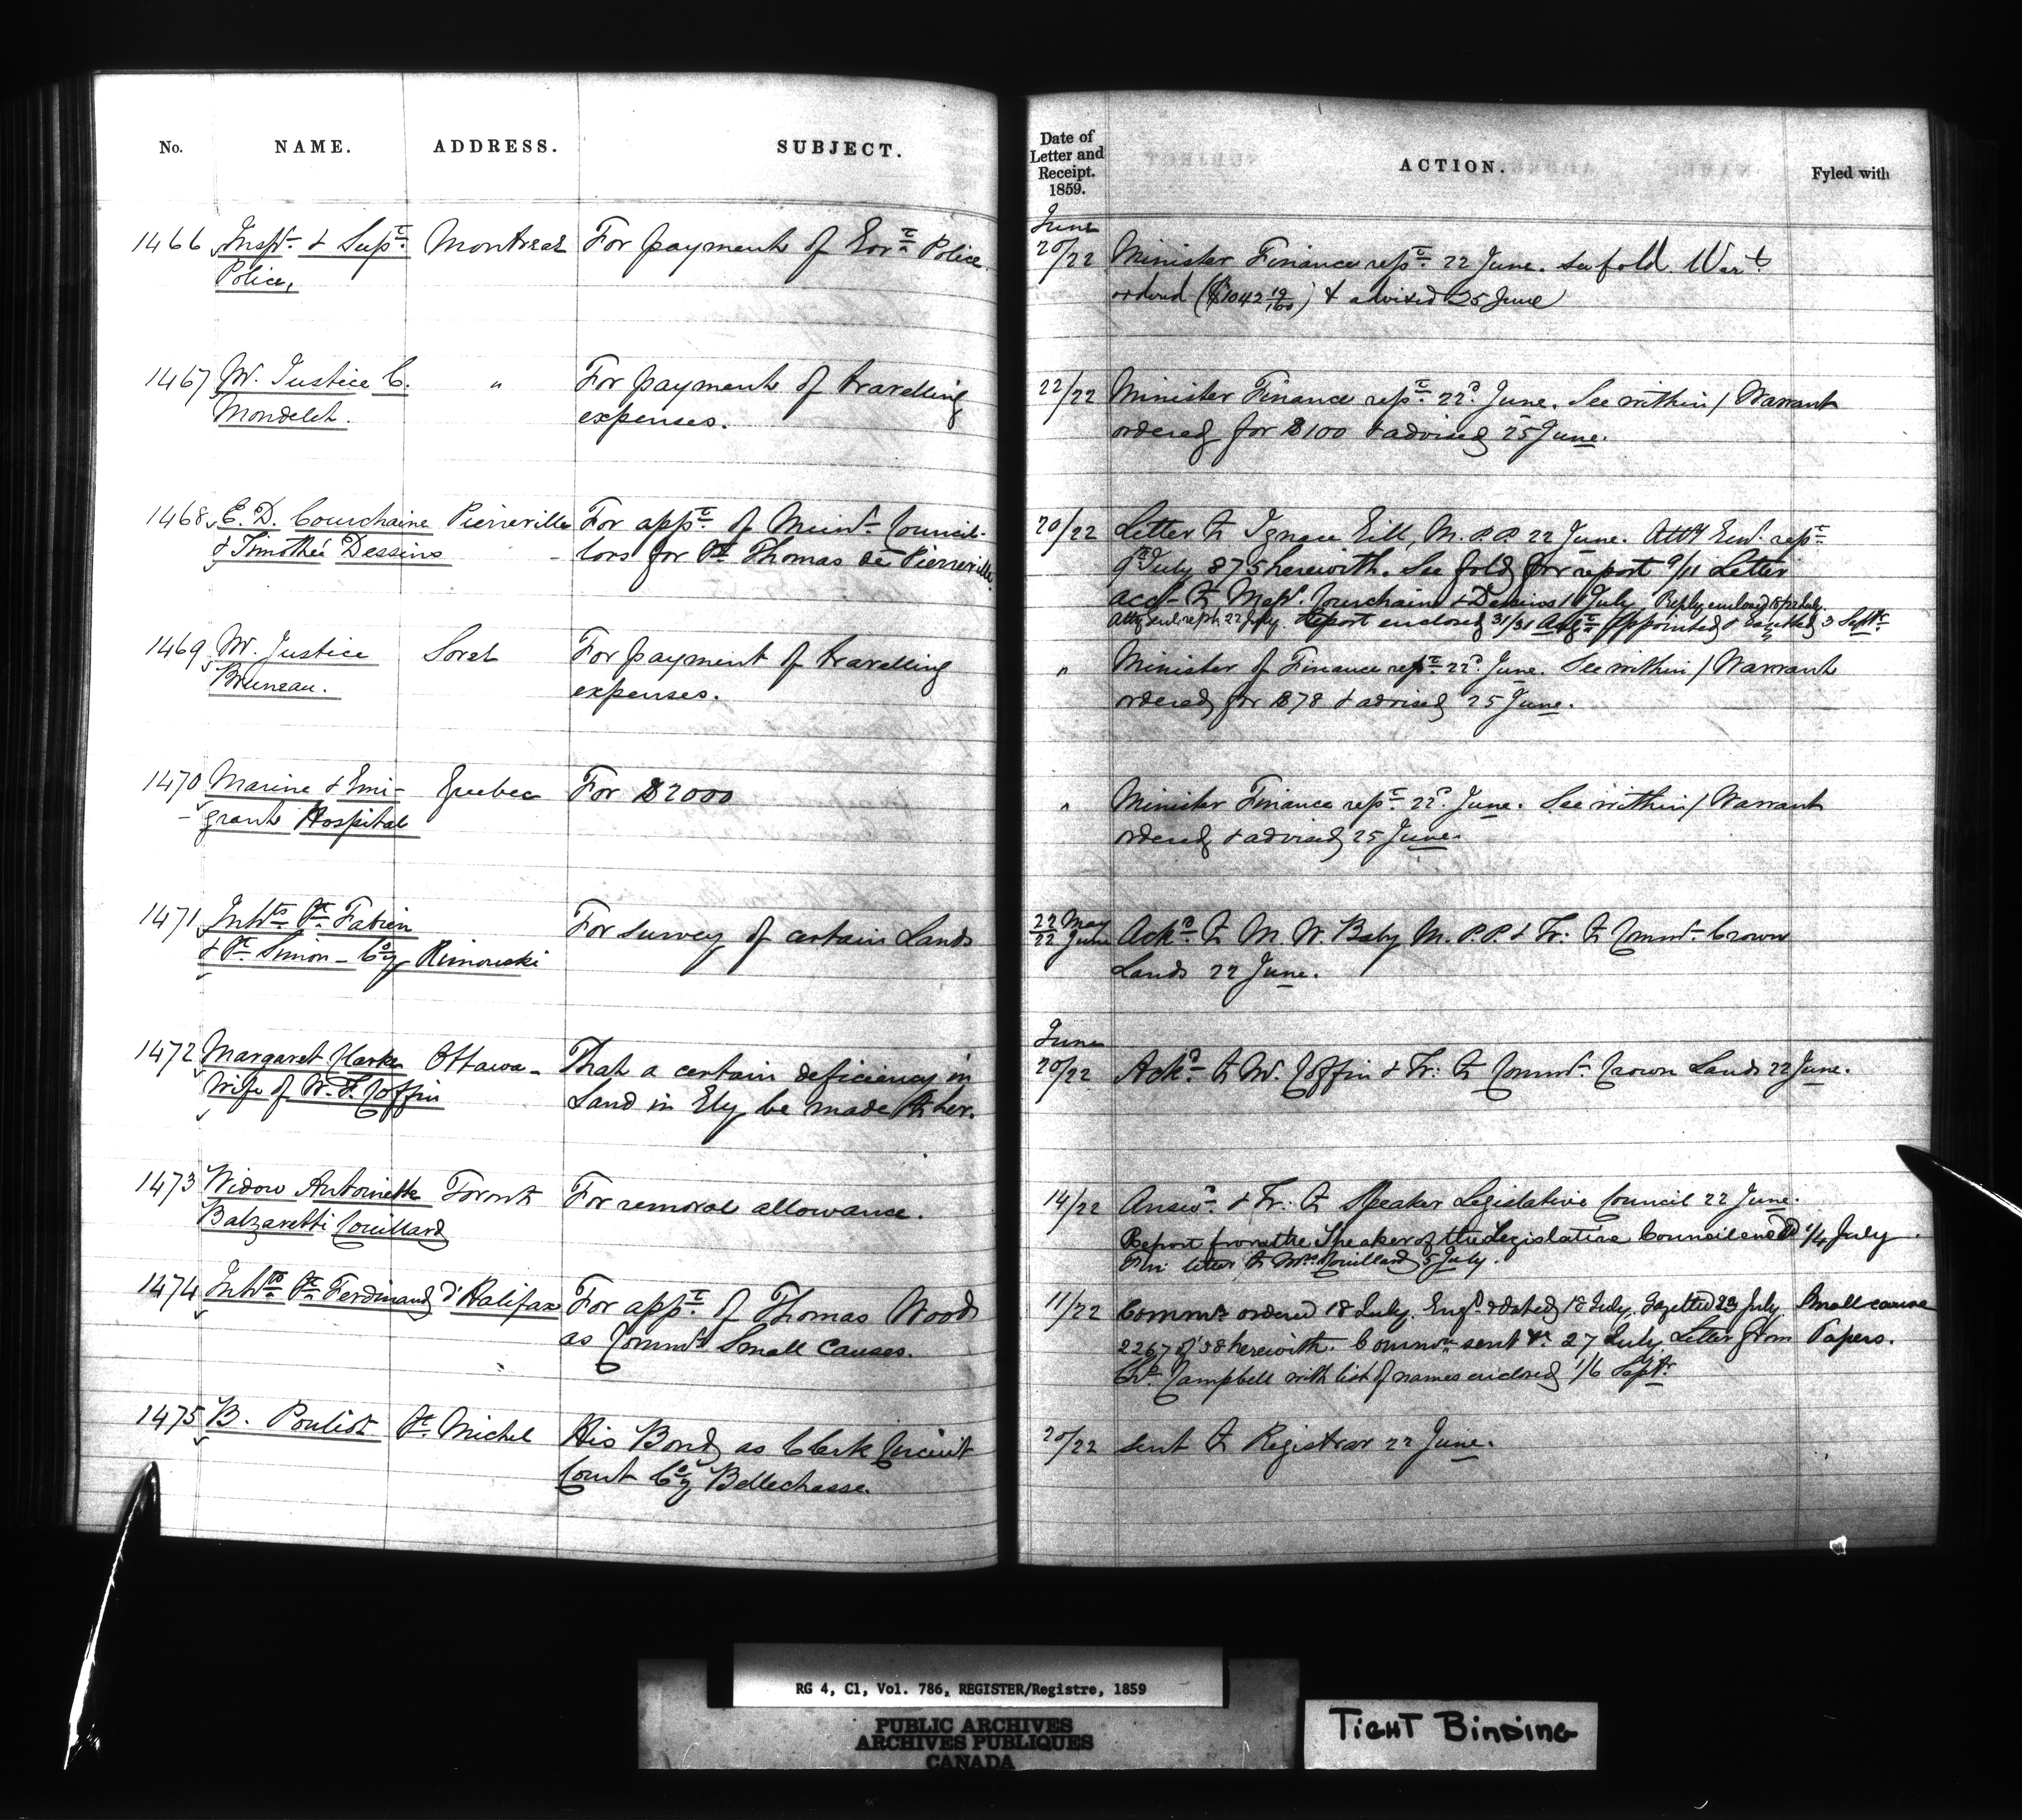 No. NAME. ADDRESS. SUBJECT.
Date of Letter and Receipt. 1859. ACTION. Fyled with
1466 Inspr & Supt Montreal For payment of Govt Police.
Police,
June
20/22 Minister Finance rept 22 June. See fold. Wart
ordered ($1042 19/100) & advised 25 June
1467 Mr. Justice C. " For payment of travelling
Mondelet. expenses.
22/22 Minister Finance rept 22d June. See within / Warrant
ordered for $100 & advised 25 June.
1468 E. D. Courchaine Pierreville For appt of Munl Council-
& Timothée Dessins lors for St Thomas de Pierreville
20/22 Letter to Ignace Gill, M.P.P 22 June. Atty Genl rept
9 July 875 herewith. See fold for report 9/11 Letter
acct to Messrs. Courchain & Dessins 11 July Reply enclosed 18/22 July.
Atty Genl rept 22 July. Report enclosed 31/31 Augt Appointed & Gazetted 3 Septr
1469 Mr. Justice Sorel For payment of travelling
Bruneau. expenses.
" Minister of Finance rept 22d June. See within / Warrant
ordered for $78 & advised 25 June.
1470 Marine & Emi- Quebec For $2000
grant Hospital
" Minister Finance rept 22d June. See within / Warrant
ordered & advised 25 June.
1471 Inhts St Fabien For survey of certain Lands
& St Simon - Coy Rimouski
22 May
22 June Ackd to M. W. Baby M.P.P. & Tr: to Commr Crown
Lands 22 June.
1472 Margaret Clarke Ottawa - That a certain deficiency in
Wife of W. F. Coffin Land in Ely be made to her.
June
20/22 Ackd to Mr. Coffin & Tr: to Commr Crown Lands 22 June.
1473 Widow Antoinette Toronto For removal allowance.
Balzaretti Couillard
14/22 Answd & Tr: to Speaker Legislative Council 22 June.
Report from the Speaker of the Legislative Council encd 1/4 July.
letter to Mrs Couillard 5 July.
1474 Inhts St Ferdinand d'Halifax For appt of Thomas Wood
as Commr Small Causes.
11/22 Commn ordered 18 July. Engd & dated 18 July. Gazetted 23 July Small cause
2267 of 58 herewith. Commn sent 27 July. Letter from Papers.
Chs Campbell with list of names enclosed 1/6 Septr
1475 B. Pouliot St Michel His Bond as Clerk Circuit
Court Coy Bellechasse.
20/22 sent to Registrar 22 June.
RG 4, C1, Vol. 786, REGISTER/Registre, 1859
PUBLIC ARCHIVES
ARCHIVES PUBLIQUES
CANADA
TIGHT BINDING